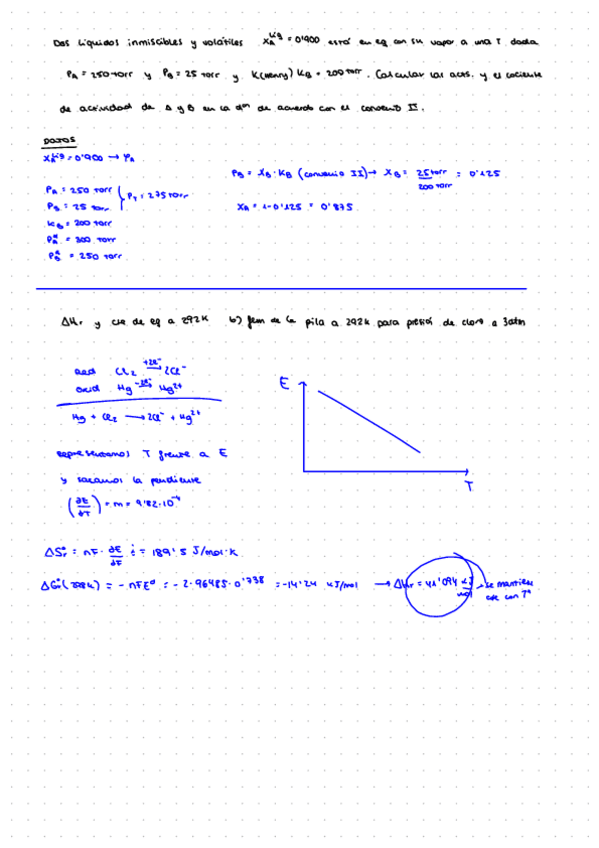 Dos líquidos inmiscibles y volátiles X_A^liq = 0'900 está en eq con su vapor a una T dada
P_A = 250 torr y P_B = 25 torr y K(Henry) K_B = 200 torr. Calcular las acts. y el cociente
de actividad de A y B en la dºn de acuerdo con el convenio II.
DATOS
X_A^liq = 0'900 → P_A
P_A = 250 torr
P_B = 25 torr } P_T = 275 torr
K_B = 200 torr
P_A^* = 300 torr
P_B^* = 250 torr
P_B = X_B · K_B (convenio II) → X_B = 25 torr / 200 torr = 0'125
X_A = 1 - 0'125 = 0'875
ΔH_r y cte de eq a 292K b) fem de la pila a 292K para presión de cloro a 3atm
red Cl_2 +2e^- → 2Cl^-
oxid Hg -2e^- → Hg^2+
Hg + Cl_2 → 2Cl^- + Hg^2+
representamos T frente a E
y sacamos la pendiente
(∂E/∂T) = m = 9'82·10^-4
E
T
ΔS_r^o = nF · ∂E/∂F ¿ = 189'5 J/mol·K
ΔG_r^o (298K) = - nFE^o = - 2·96485·0'738 = -14'24 kJ/mol → ΔH_r = 41'094 kJ/mol → se mantiene cte con Tª